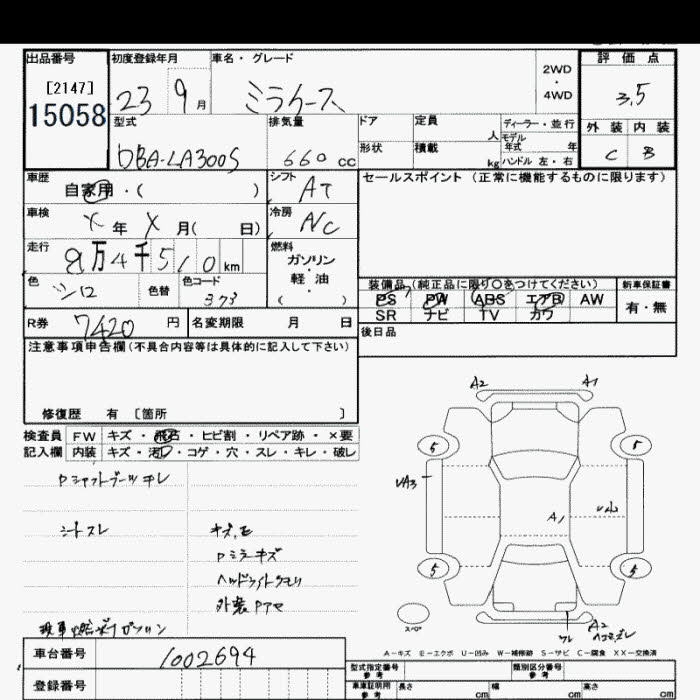 出品番号 初度登録年月 車名・グレード 2WD・4WD 評価点
[2147]
15058 23 9月 ミライース 3.5
型式 排気量 ドア 定員 人 ディーラー・並行 外装 内装
モデル年式 年
DBA-LA300S 660cc 形状 積載 kg ハンドル 左・右 C B
車歴 シフト セールスポイント (正常に機能するものに限ります)
自家用・( ) AT
車検 冷房
X年 X月( 日) AC
走行 燃料
8万4千510km ガソリン・軽油
( )
色 シロ 色替 色コード 装備品 (純正品に限り○をつけてください) 新車保証書
PS PW ABS エアB AW 有・無
SR ナビ TV カワ
R券 7420円 名変期限 月 日 後日品
注意事項申告欄(不具合内容等は具体的に記入して下さい)
修復歴 有 〔箇所 〕
検査員 FW キズ・飛石・ヒビ割・リペア跡・×要
記入欄 内装 キズ・汚レ・コゲ・穴・スレ・キレ・破レ
A2 A1
5 5
シートスレ キズ、
Pミラーキズ
A1
ヘッドライトクモリ
5 5
スペア
A2
A-キズ E-エクボ U-凹み W-補修跡 S-サビ C-腐食 XX-交換済
車台番号 1002694
型式指定番号 参考 類別区分番号 参考
登録番号
車庫証明用 参考 長さ cm 幅 cm 高さ cm